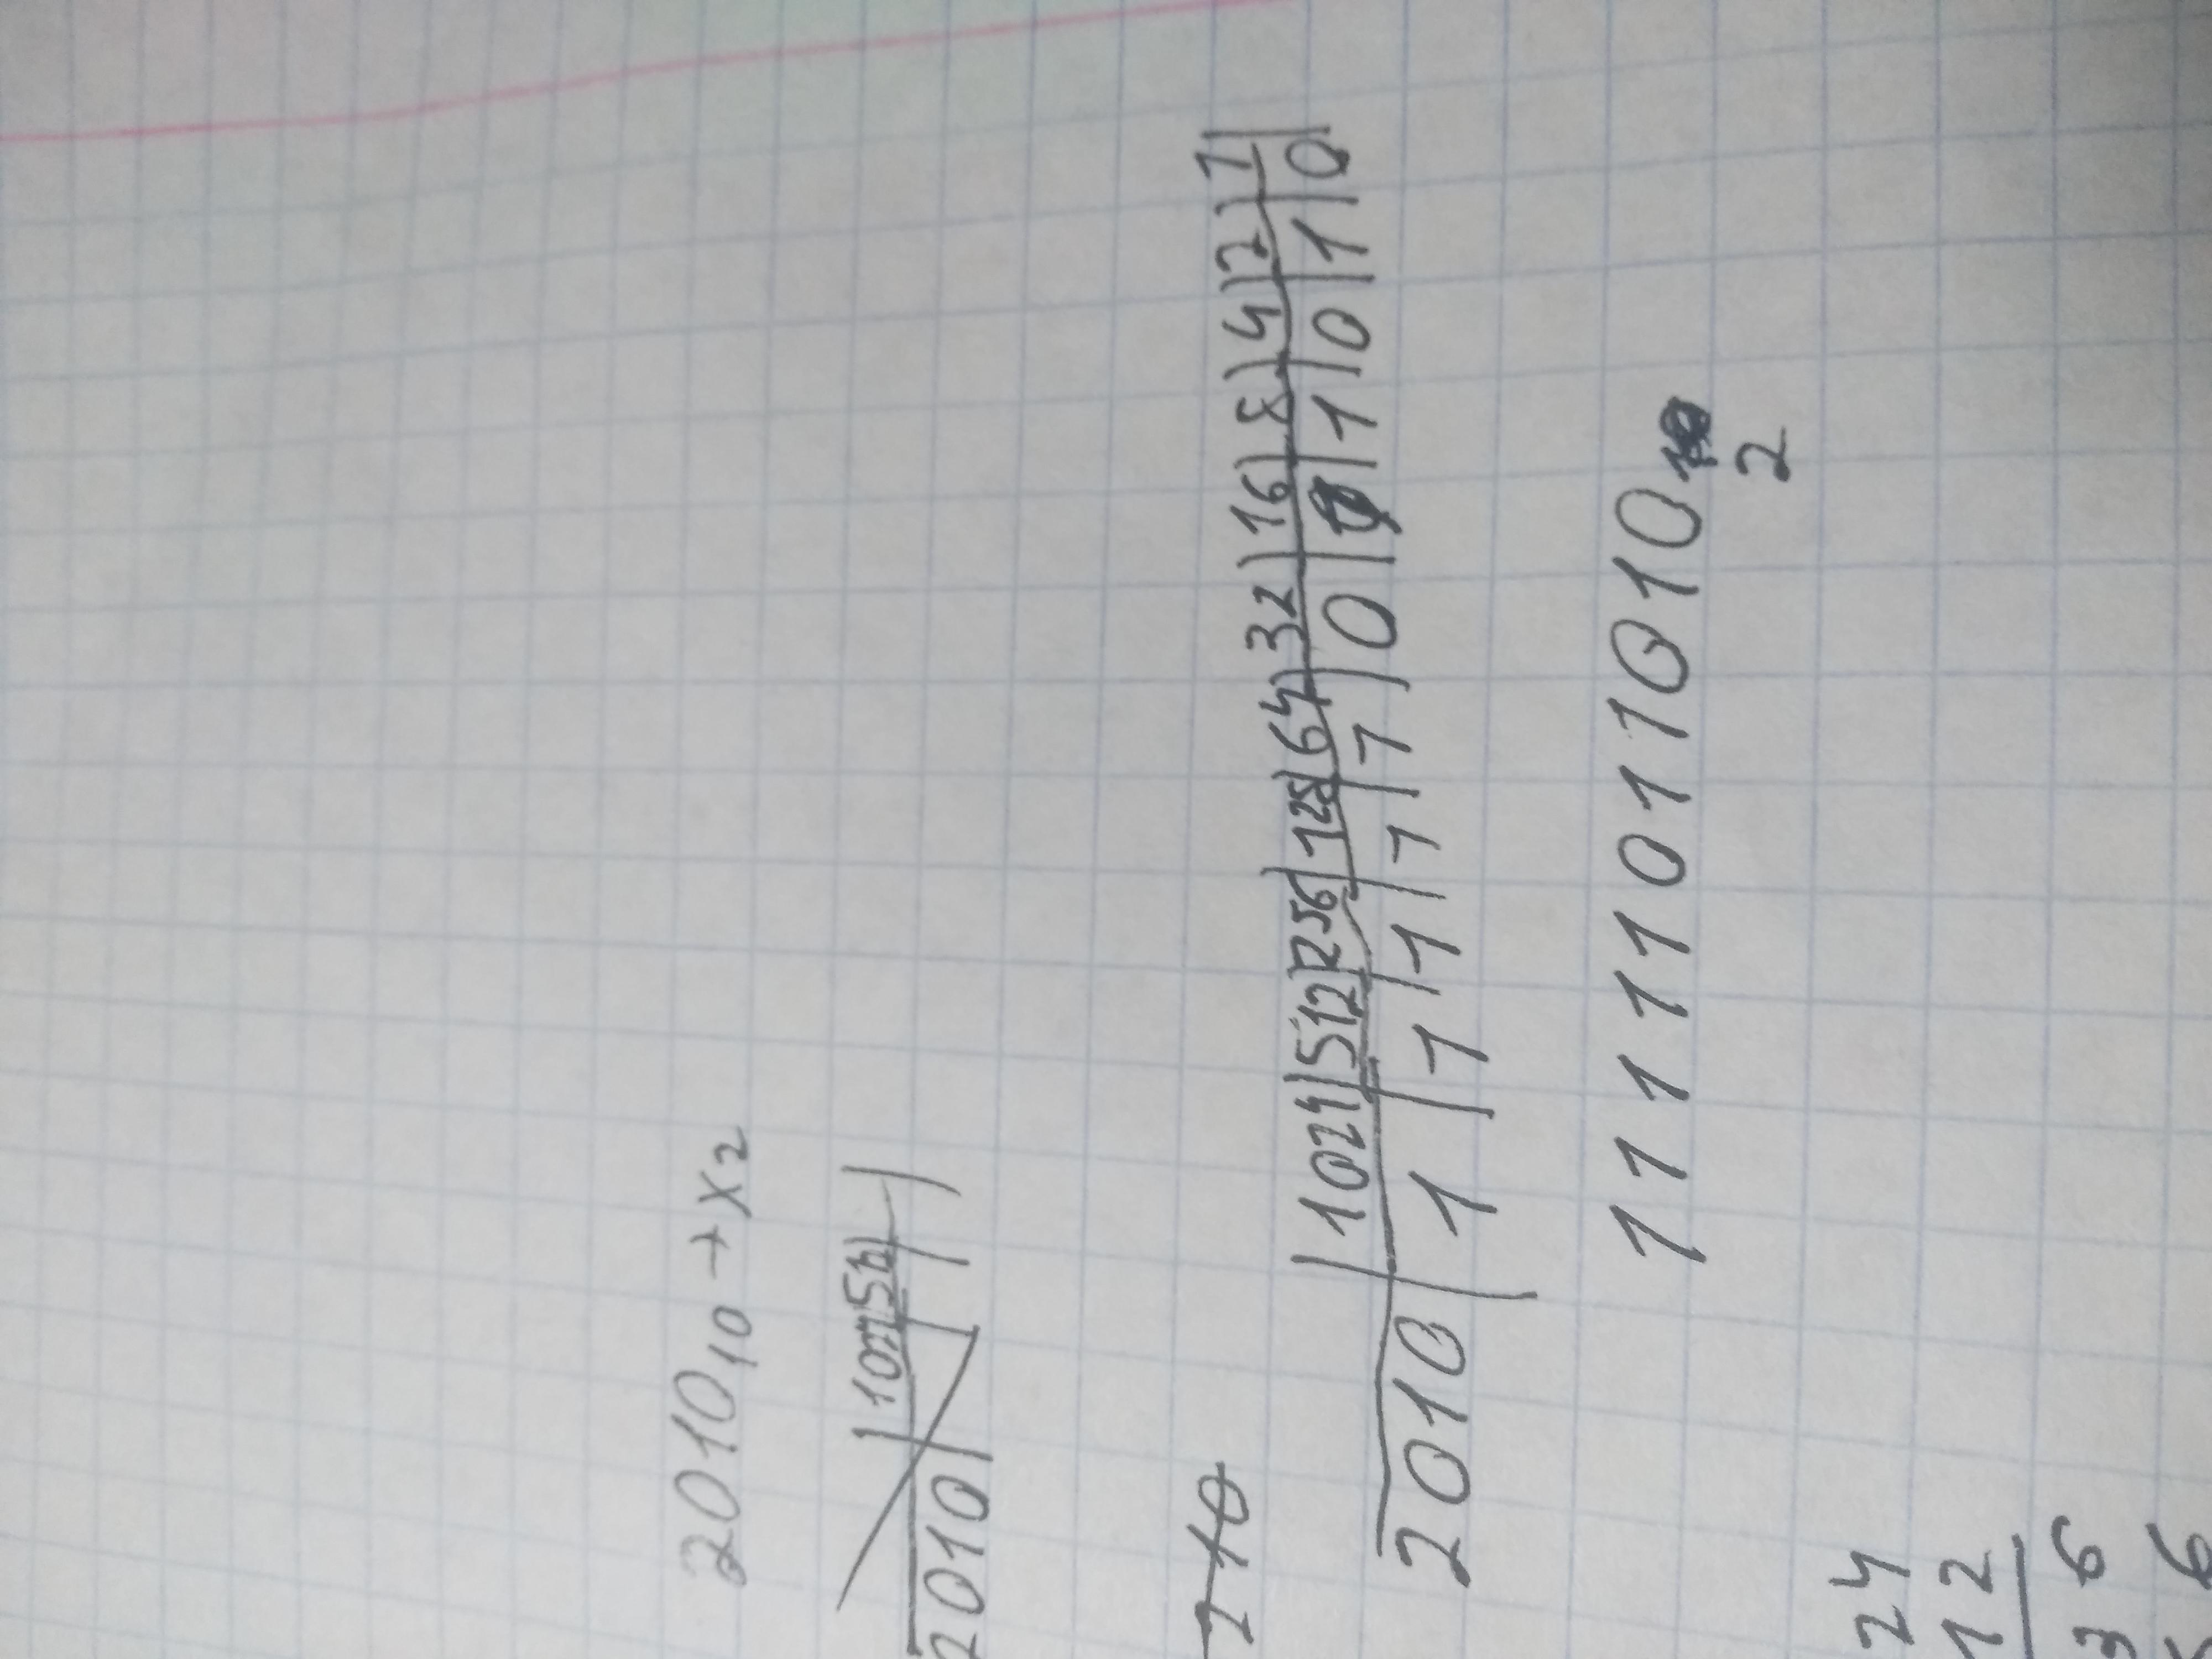 2010₁₀ → x₂
2010 | 1024 | 512 |
210
| 1024 | 512 | 256 | 128 | 64 | 32 | 16 | 8 | 4 | 2 | 1
2010 | 1 | 1 | 1 | 1 | 1 | 0 | 1 | 1 | 0 | 1 | 0
11111011010₂
24
12
36
6